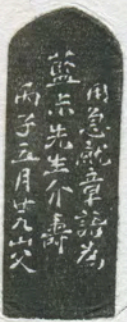 用急就章語為
藍尗先生介壽
丙子五月廿九山父